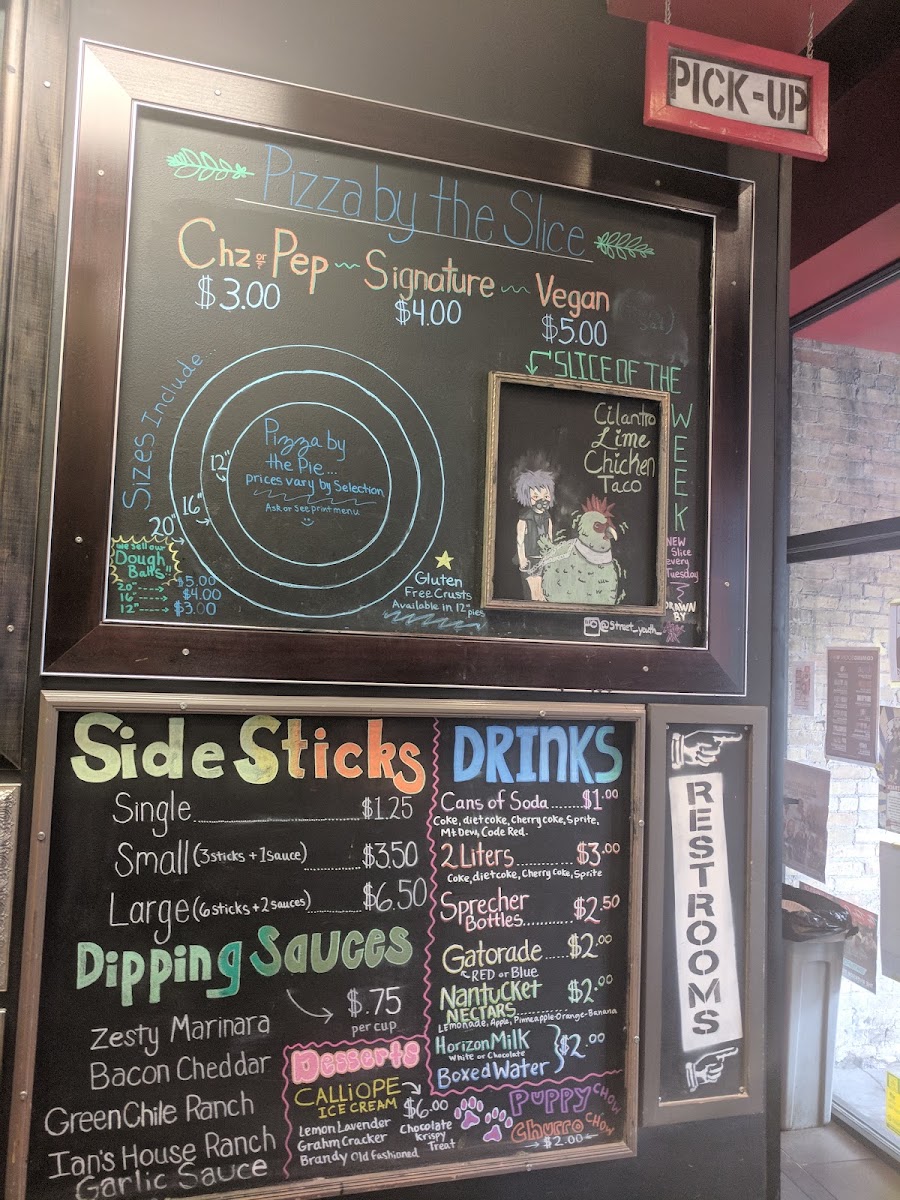 PICK-UP
Pizza by the Slice
Chz or Pep ~ Signature ~ Vegan
$3.00 $4.00 $5.00
SLICE OF THE WEEK
Cilantro
Lime
Chicken
Taco
NEW
Slice
every
Tuesday
DRAWN
BY
@street_youth_
Sizes Include
12"
16"
20"
Pizza by
the Pie...
prices vary by Selection
Ask or see print menu
we sell our
Dough
Balls!!
20" ----> $5.00
16" ----> $4.00
12" ----> $3.00
Gluten
Free Crusts
Available in 12" pies
Side Sticks
Single $1.25
Small (3 sticks + 1 sauce) $3.50
Large (6 sticks + 2 sauces) $6.50
Dipping Sauces
$.75
per cup
Zesty Marinara
Bacon Cheddar
Green Chile Ranch
Ian's House Ranch
Garlic Sauce
Desserts
CALLIOPE
ICE CREAM
$6.00
Lemon Lavender
Grahm Cracker
Brandy Old Fashioned
Chocolate
Krispy
Treat
DRINKS
Cans of Soda $1.00
Coke, diet coke, Cherry coke, Sprite,
Mt Dew, Code Red.
2 Liters $3.00
Coke, diet coke, Cherry Coke, Sprite
Sprecher
Bottles $2.50
Gatorade $2.00
RED or Blue
Nantucket
NECTARS $2.00
Lemonade, Apple, Pinneapple-Orange-Banana
Horizon Milk
White or Chocolate
$2.00
Boxed Water
PUPPY CHOW
Churro CHOW
$2.00
RESTROOMS